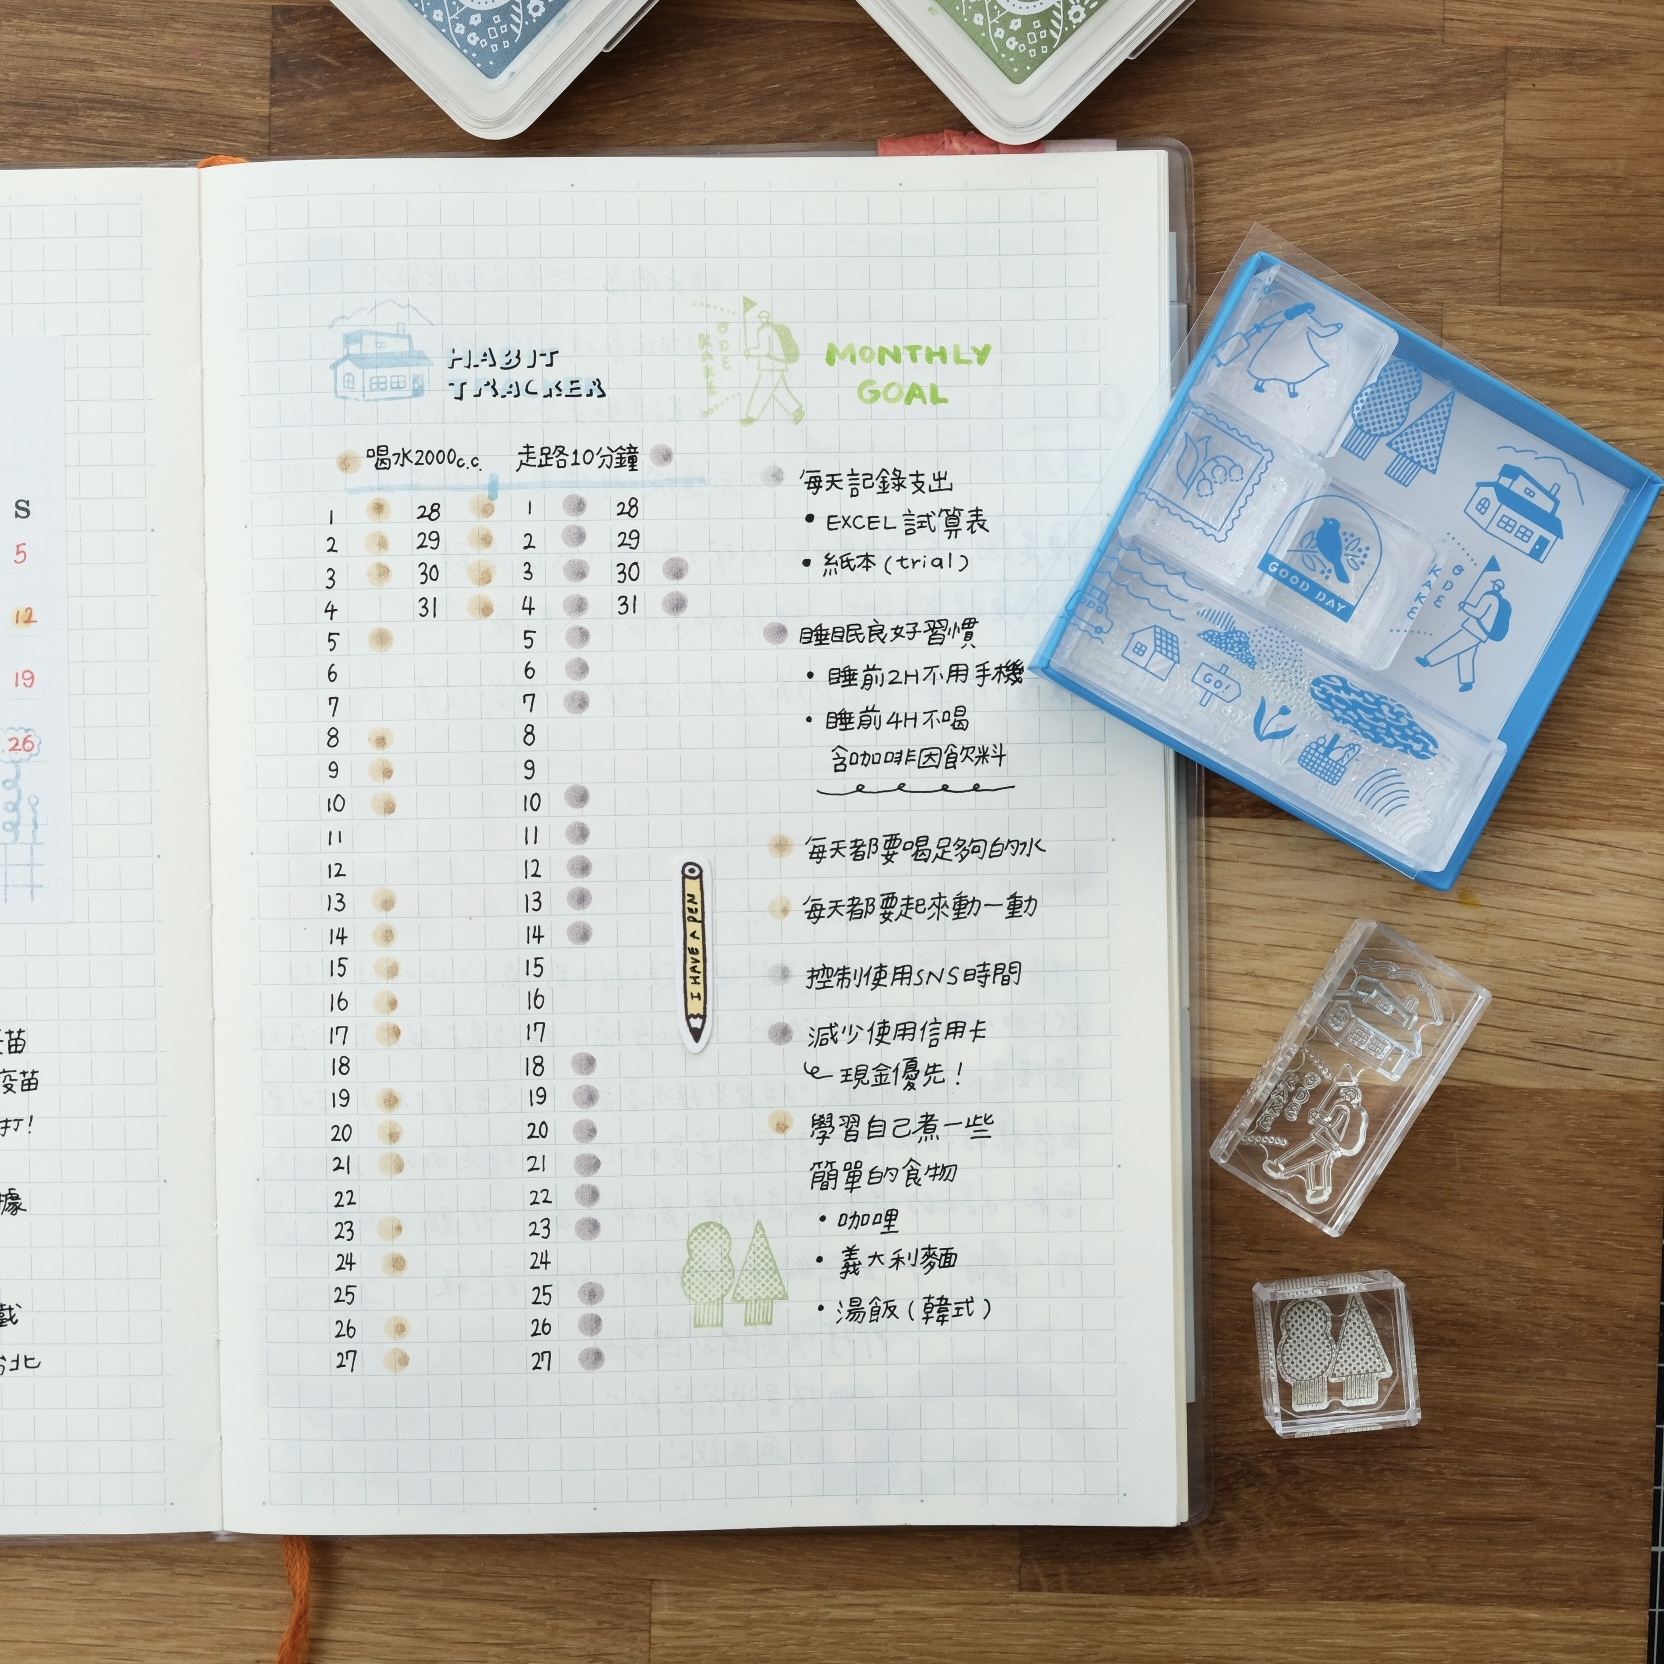 S
5
12
19
26
苗
疫苗
打!
據
北
HABIT
TRACKER
喝水2000c.c.
走路10分鐘
1 28 1 28
2 29 2 29
3 30 3 30
4 31 4 31
5 5
6 6
7 7
8 8
9 9
10 10
11 11
12 12
13 13
14 14
15 15
16 16
17 17
18 18
19 19
20 20
21 21
22 22
23 23
24 24
25 25
26 26
27 27
ODE
KAKE
MONTHLY
GOAL
每天記錄支出
• EXCEL 試算表
• 紙本(trial)
睡眠良好習慣
• 睡前2H不用手機
• 睡前4H不喝
含咖啡因飲料
每天都要喝足夠的水
每天都要起來動一動
控制使用SNS時間
減少使用信用卡
現金優先!
學習自己煮一些
簡單的食物
• 咖哩
• 義大利麵
• 湯飯(韓式)
I HAVE A PEN
GOOD DAY
ODE
KAKE
GO!
ODE
KAKE